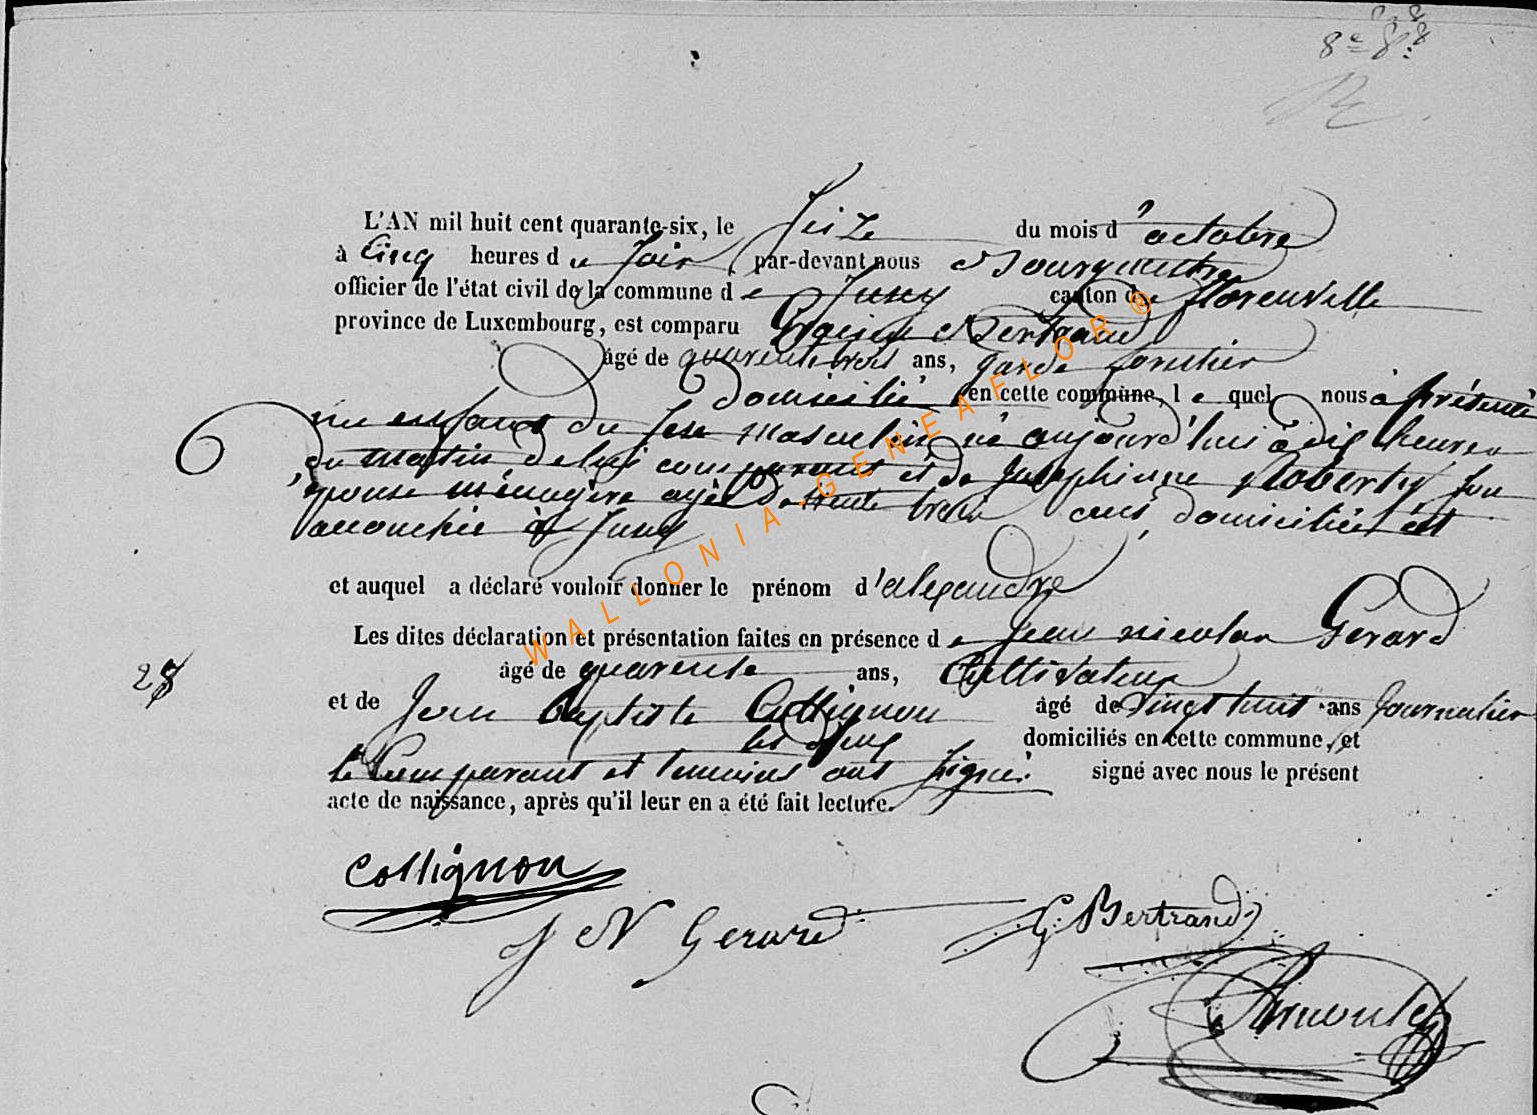 8e 8:
L'AN mil huit cent quarante-six, le Seize du mois d'octobre
à Cinq heures d u Soir, par-devant nous Bourgmestre
officier de l'état civil de la commune d e Suxy canton de florenville
province de Luxembourg, est comparu Bertrand
âgé de quarente trois ans, garde forestier
domicilié en cette commune, l e quel nous à présenté
un enfant du sexe masculin né aujourd'hui à dix heures
du matin, de lui comparant et de Josephinne Roberty son
épouse ménagère agée de trente trois ans, domiciliée et
accouchée à Suxy
et auquel a déclaré vouloir donner le prénom d'alexandre
Les dites déclaration et présentation faites en présence d e Jean nicolas Gerard
âgé de quarente ans, Cultivateur
28
et de Jean Baptiste Collignon âgé de vingt huit ans Journalier
les deux domiciliés en cette commune, et
le Comparant et temoins ont signé. signé avec nous le présent
acte de naissance, après qu'il leur en a été fait lecture.
Collignon
J N Gerard
G. Bertrand
WALLONIA-GENEAFLOR®